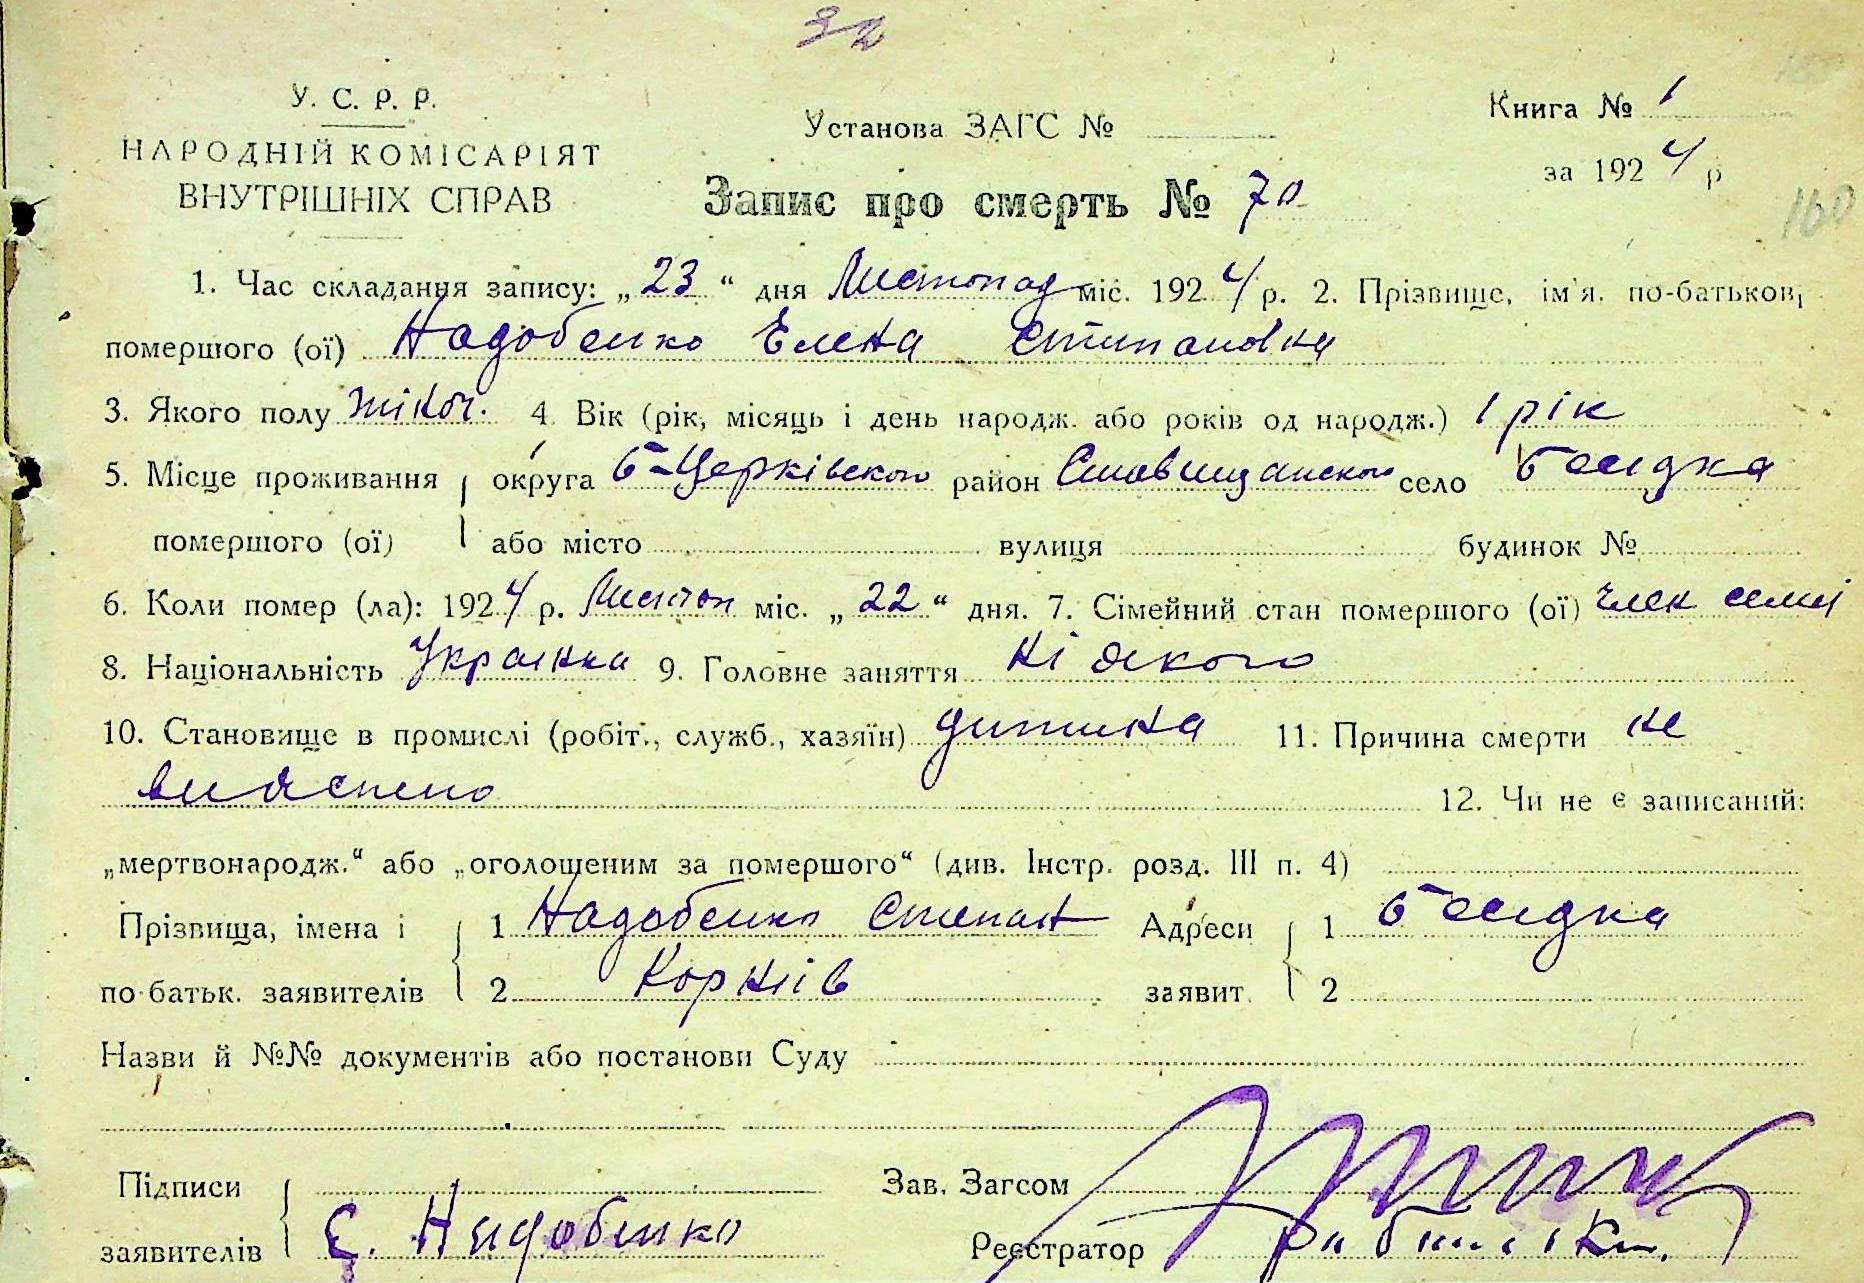 32
У. С. Р. Р.
НАРОДНІЙ КОМІСАРІЯТ
ВНУТРІШНІХ СПРАВ
Установа ЗАГС №
Книга № 1
за 1924 р
Запис про смерть № 70
160
1. Час складання запису: „23“ дня Листопад міс. 1924 р. 2. Прізвище, ім'я. по-батькові
помершого (ої) Надобенко Елена Степановна
3. Якого полу жіноч. 4. Вік (рік, місяць і день народж. або років од народж.) 1 рік
5. Місце проживання округа Б-Церківского район Ставищанского село Бесидка
помершого (ої) або місто вулиця будинок №
6. Коли помер (ла): 1924 р. Листоп міс. „22“ дня. 7. Сімейний стан помершого (ої) член семиі
8. Національність Украінка 9. Головне заняття ні якого
10. Становище в промислі (робіт., служб., хазяїн) дитина 11. Причина смерти не
вияснено
12. Чи не є записаний:
„мертвонародж.“ або „оголошеним за помершого“ (див. Інстр. розд. III п. 4)
Прізвища, імена і 1 Надобенко Степан Адреси 1 Бесидка
по батьк. заявителів 2 Корніів заявит. 2
Назви й №№ документів або постанови Суду
Підписи
Зав. Загсом
заявителів С. Надобенко
Реєстратор